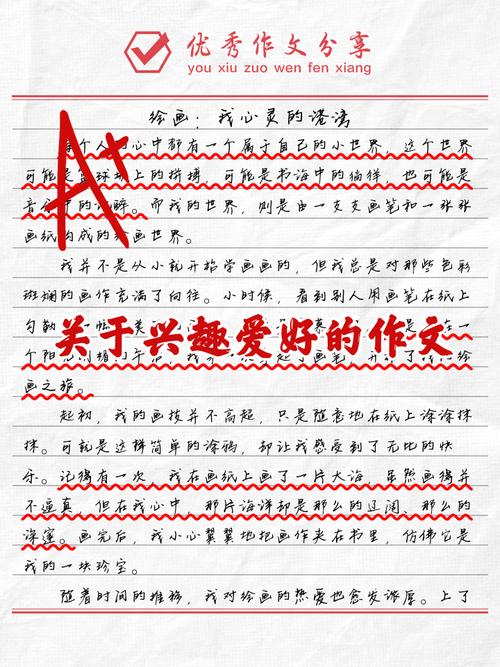 优秀作文分享
you xiu zuo wen fen xiang
绘画：我心灵的港湾
A+
个人心中都有一个属于自己的小世界，这个世界
可能是篮球场上的拼搏，可能是书海中的徜徉，也可能是
音中的沉醉。而我的世界，则是由一支支画笔和一张张
画纸构成的绘画世界。
我并不是从小就开始学画画的，但我总是对那些色彩
斑斓的画作充满了向往。小时候，看到别人用画笔在纸上
勾勒一幅美
关于兴趣爱好的作文
在一
个阳的午
画之旅。
起初，我的画技并不高超，只是随意地在纸上涂涂抹
抹。可就是这样简单的涂鸦，却让我感受到了无比的快
乐。记得有一次，我在画纸上画了一片大海，虽然画得并
不逼真，但在我心中，那片海洋却是那么的辽阔、那么的
深邃。画完后，我小心翼翼地把画作夹在书里，仿佛它是
我的一块珍宝。
随着时间的推移，我对绘画的热爱也愈发浓厚。上了